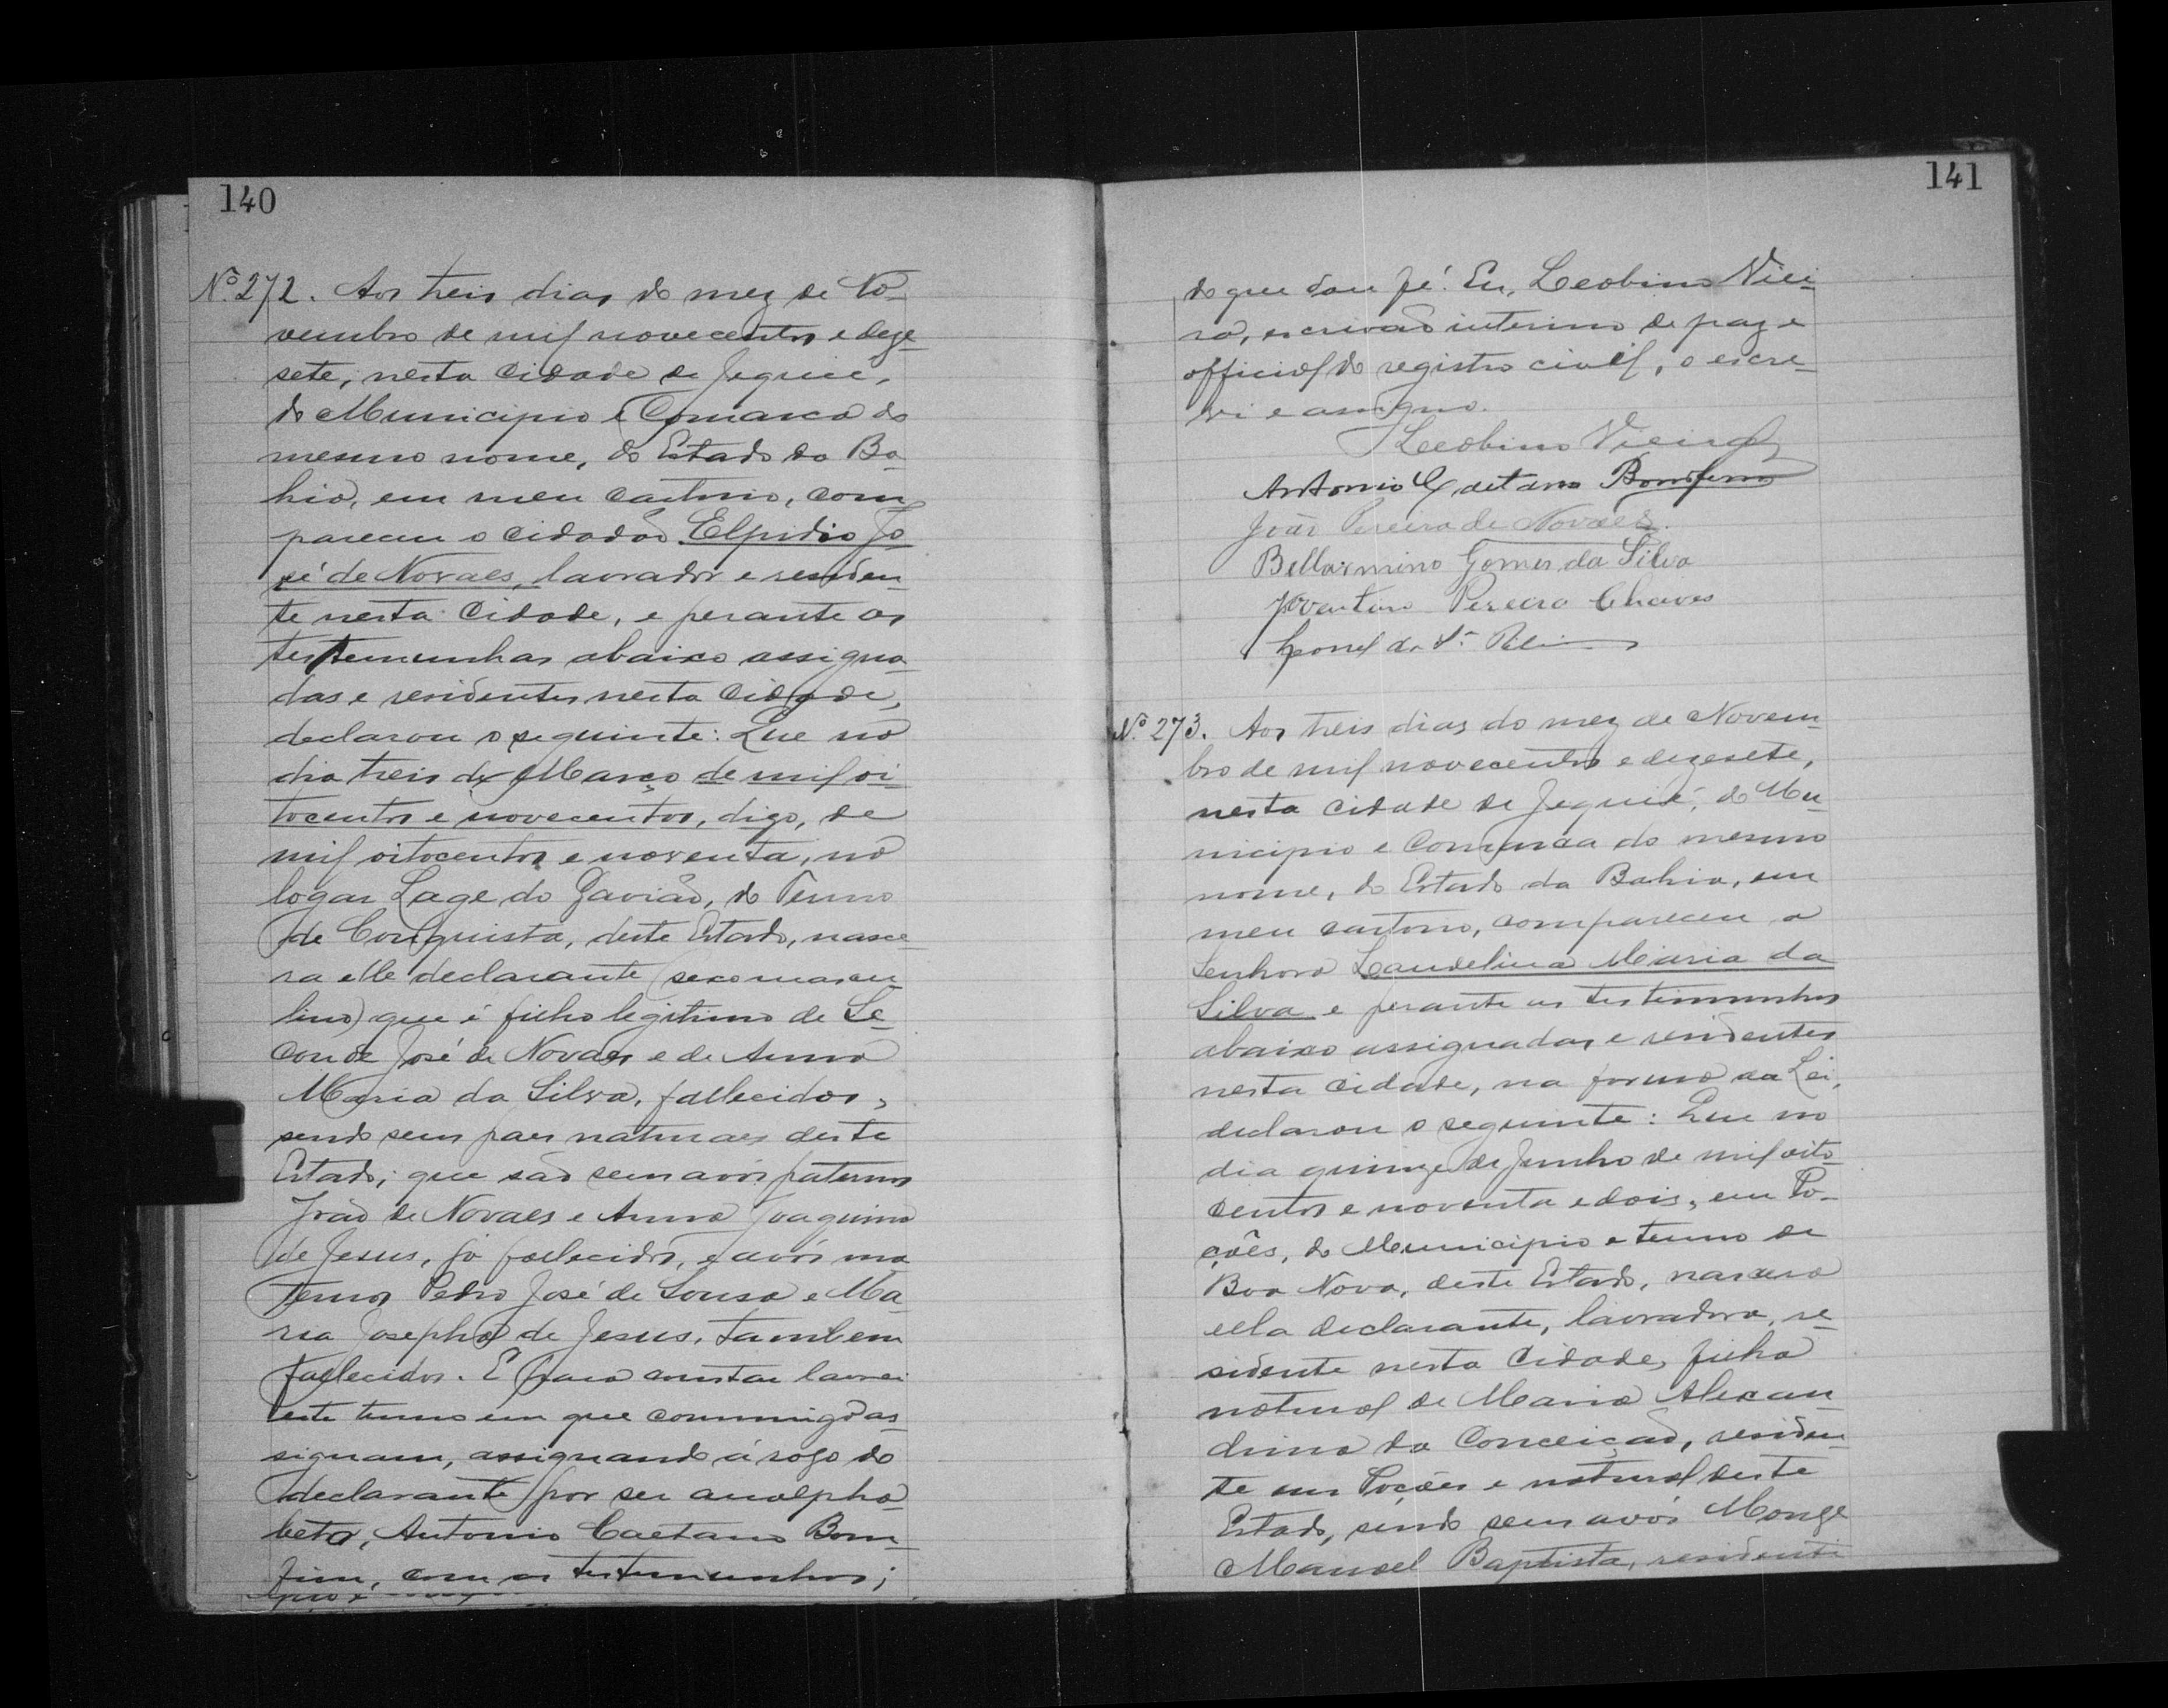 140
Nº 272. Aos treis dias do mez de No-
vembro de mil novecentos e deze-
sete, nesta cidade de Jequié,
do Municipio e Comarca do
mesmo nome, do Estado da Ba-
hia, em meu cartorio, com-
pareceu o cidadão Elpidio Jo-
sé de Novaes, lavrador e residen-
te nesta cidade, e perante as
testemunhas abaixo assigna-
das e residentes nesta cidade,
declarou o seguinte: Que no
dia treis de Março de mil oi-
tocentos e novecentos, digo, de
mil oitocentos e noventa, no
logar Lage do Gavião, do Termo
de Conquista, deste Estado, nasce-
ra elle declarante (sexo mascu-
lino) que é filho legitimo de
José de Novaes e de Anna
Maria da Silva, fallecidos,
sendo seus paes naturaes deste
Estado; que são seus avós paternos
João de Novaes e Anna Joaquina
de Jesus, já fallecidos, e avós ma-
ternos Pedro José de Sousa e Ma-
ria Josepha de Jesus, tambem
fallecidos. E para constar lavrei
este termo em que commigo as-
signam, assignando á rogo do
declarante por ser analpha-
beto, Antonio Caetano Bom-
fim, com as testemunhas;
141
do que dou fé. Eu, Leobino Viei-
ra, escrivão interino de paz e
official do registro civil, o escre-
vi e assigno.
Leobino Vieira
Antonio Caetano Bomfim
João Pereira de Novaes.
Bellarmino Gomes da Silva
Pereira Chaves
Leonel da
Nº 273. Aos treis dias do mez de Novem-
bro de mil novecentos e dezesete,
nesta cidade de Jequié, do Mu-
nicipio e Comarca do mesmo
nome, do Estado da Bahia, em
meu cartorio, compareceu a
Senhora Laudelina Maria da
Silva e perante as testemunhas
abaixo assignadas e residentes
nesta cidade, na forma da Lei,
declarou o seguinte: Que no
dia quinze de Junho de mil oito-
centos e noventa e dois, em Po-
ções, do Municipio e termo de
Boa Nova, deste Estado, nascera
ella declarante, lavradora, re-
sidente nesta cidade, filha
natural de Maria Alexan-
drina da Conceição, residen-
te em Poções e natural deste
Estado, sendo seus avós Monge
Manoel Baptista, residente